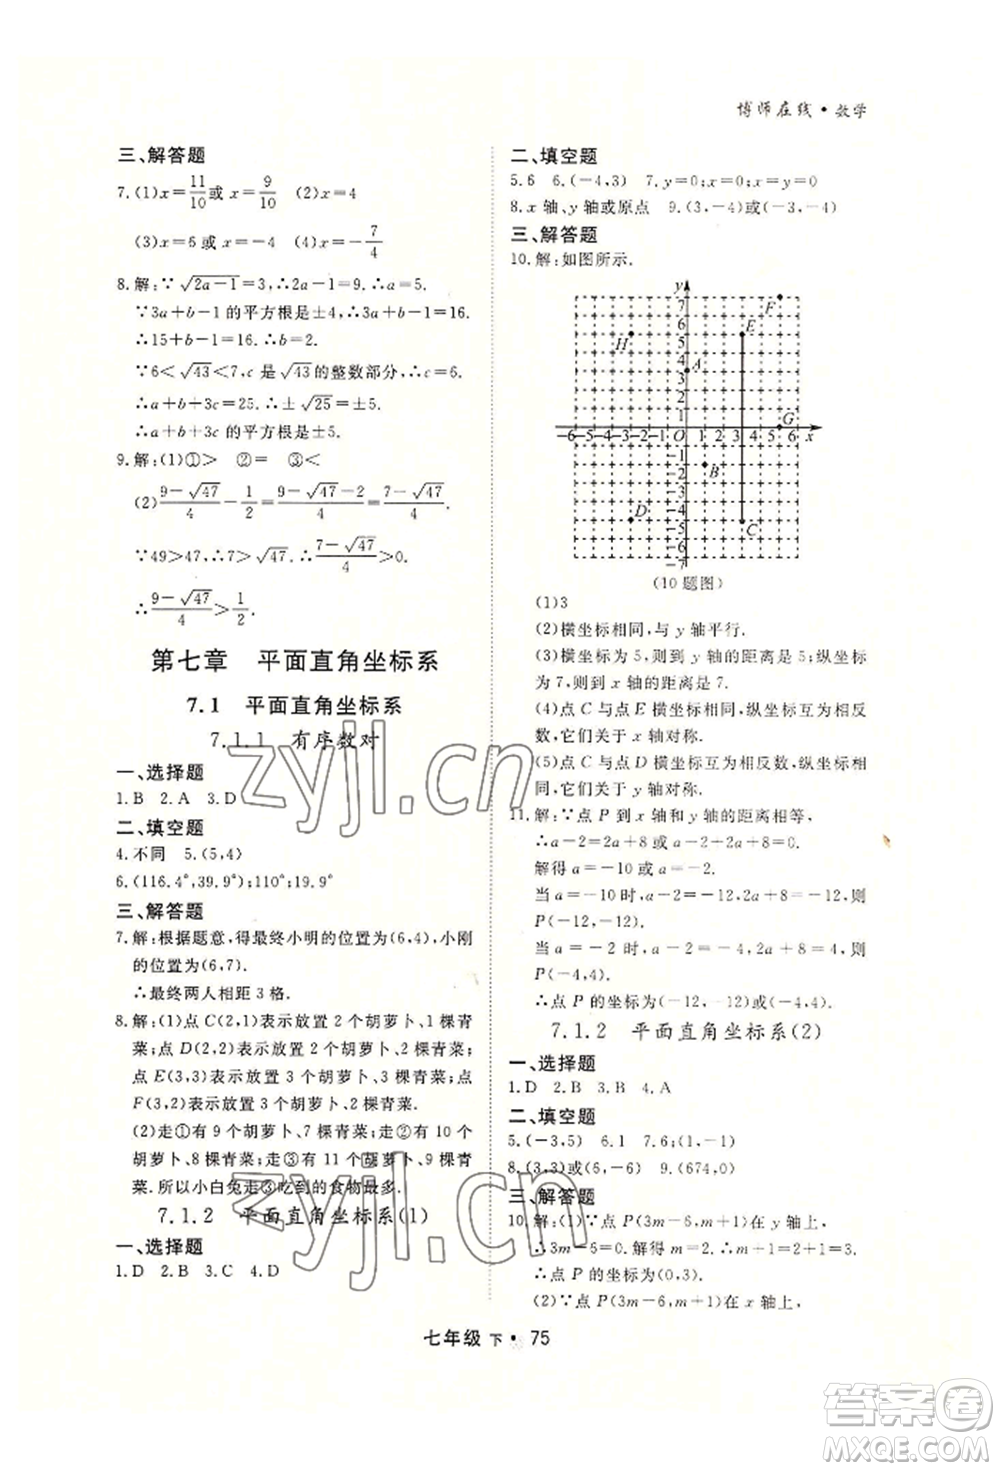 博师在线·数学
三、解答题
7.(1)x=11/10或x=9/10 (2)x=4
(3)x=6或x=-4 (4)x=-7/4
8.解:∵√(2a-1)=3,∴2a-1=9.∴a=5.
∵3a+b-1的平方根是±4,∴3a+b-1=16.
∴15+b-1=16.∴b=2.
∵6<√43<7,c是√43的整数部分,∴c=6.
∴a+b+3c=25.∴±√25=±5.
∴a+b+3c的平方根是±5.
9.解:(1)①> ②= ③<
(2)(9-√47)/4-1/2=(9-√47-2)/4=(7-√47)/4.
∵49>47,∴7>√47.∴(7-√47)/4>0.
∴(9-√47)/4>1/2.
第七章 平面直角坐标系
7.1 平面直角坐标系
7.1.1 有序数对
一、选择题
1.B 2.A 3.D
二、填空题
4.不同 5.(5,4)
6.(116.4°,39.9°);110°;19.9°
三、解答题
7.解:根据题意,得最终小明的位置为(6,4),小刚
的位置为(6,7).
∴最终两人相距3格.
8.解:(1)点C(2,1)表示放置2个胡萝卜、1棵青
菜;点D(2,2)表示放置2个胡萝卜、2棵青菜;
点E(3,3)表示放置3个胡萝卜、3棵青菜;点
F(3,2)表示放置3个胡萝卜、2棵青菜.
(2)走①有9个胡萝卜、7棵青菜;走②有8个
胡萝卜、7棵青菜;走③有9个胡萝卜、8棵青
菜.所以小白兔走③吃到的食物最多.
7.1.2 平面直角坐标系(1)
一、选择题
1.D 2.B 3.C 4.D
二、填空题
5.6 6.(-4,3) 7.y=0;x=0;x=0;y=0
8.x轴、y轴或原点 9.(3,-4)或(-3,-4)
三、解答题
10.解:如图所示.
y
7
6
5
4
3
2
1
-6 -5 -4 -3 -2 -1 O 1 2 3 4 5 6 x
-1
-2
-3
-4
-5
-6
-7
F
E
H
A
G
B
D
C
(10题图)
(1)3
(2)横坐标相同,与y轴平行.
(3)横坐标为5,则到y轴的距离是5;纵坐标
为7,则到x轴的距离是7.
(4)点C与点E横坐标相同,纵坐标互为相反
数,它们关于x轴对称.
(5)点C与点D横坐标互为相反数,纵坐标相
同,它们关于y轴对称.
11.解:∵点P到x轴和y轴的距离相等,
∴a-2=2a+8或a-2+2a+8=0.
解得a=-10或a=-2.
当a=-10时,a-2=-12,2a+8=-12,则
P(-12,-12).
当a=-2时,a-2=-4,2a+8=4,则
P(-4,4).
∴点P的坐标为(-12,-12)或(-4,4).
7.1.2 平面直角坐标系(2)
一、选择题
1.D 2.B 3.B 4.A
二、填空题
5.(-3,5) 6.1 7.6;(1,-1)
8.(3,3)或(6,-6) 9.(674,0)
三、解答题
10.解:(1)∵点P(3m-6,m+1)在y轴上,
∴3m-6=0.解得m=2.∴m+1=3.
∴点P的坐标为(0,3).
(2)∵点P(3m-6,m+1)在x轴上,
七年级 下·75
zyjl.cn
zyjl.cn
答案圈
MXQE.COM